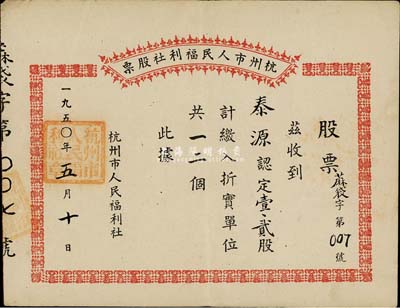 杭州市人民福利社股票
股票 蔴袋字第007號
茲收到
泰源認定壹·貳股
計繳入折實單位
共一二個
此據
杭州市人民福利社
一九五〇年五月十日
蔴袋字第〇〇七號